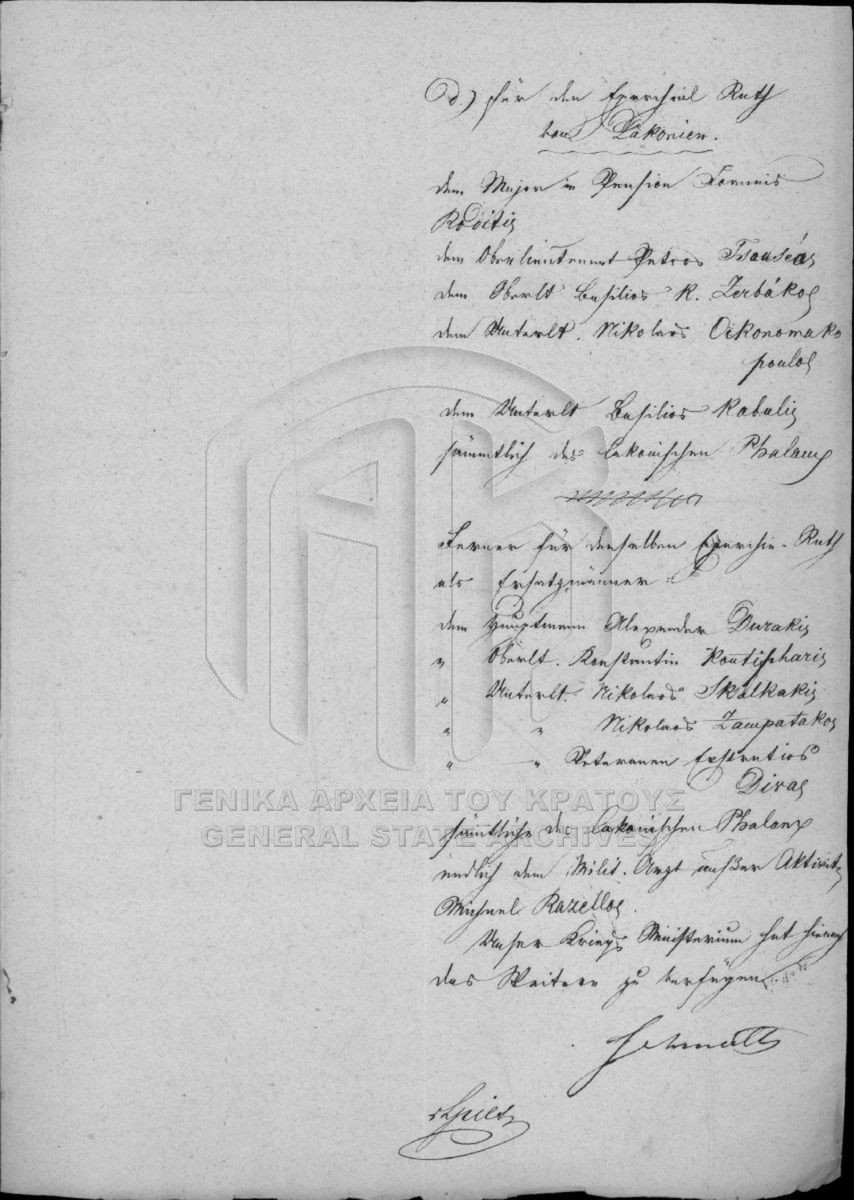 d.) für den Eparchial Rath
von Lakonien.
dem Major in Pension Ioannis
Roditis
dem Oberlieutenant Petros Tsauseas
dem Oberlt Basilios K. Zerbákos
dem Unterlt. Nikolaos Oekonomako
poulos
dem Unterlt Basilios Kabalis
sämmtlich der lakonischen Phalanx
Ferner für denselben Eparchie-Rath
als Ersatzmänner:
dem Hauptmann Alexander Durakis
" Oberlt. Konstantin
" Unterlt. Nikolaos Skalkakis
" " Nikolaos Zampatakos
" " Veteranen Evstratios
Divas
sämmtliche der lakonischen Phalanx
endlich dem Milit. Arzt außer Aktivit.
Michael Razellos.
Unser Kriegs Ministerium hat hienach
das Weitere zu verfügen
ΓΕΝΙΚΑ ΑΡΧΕΙΑ ΤΟΥ ΚΡΑΤΟΥΣ
GENERAL STATE ARCHIVES